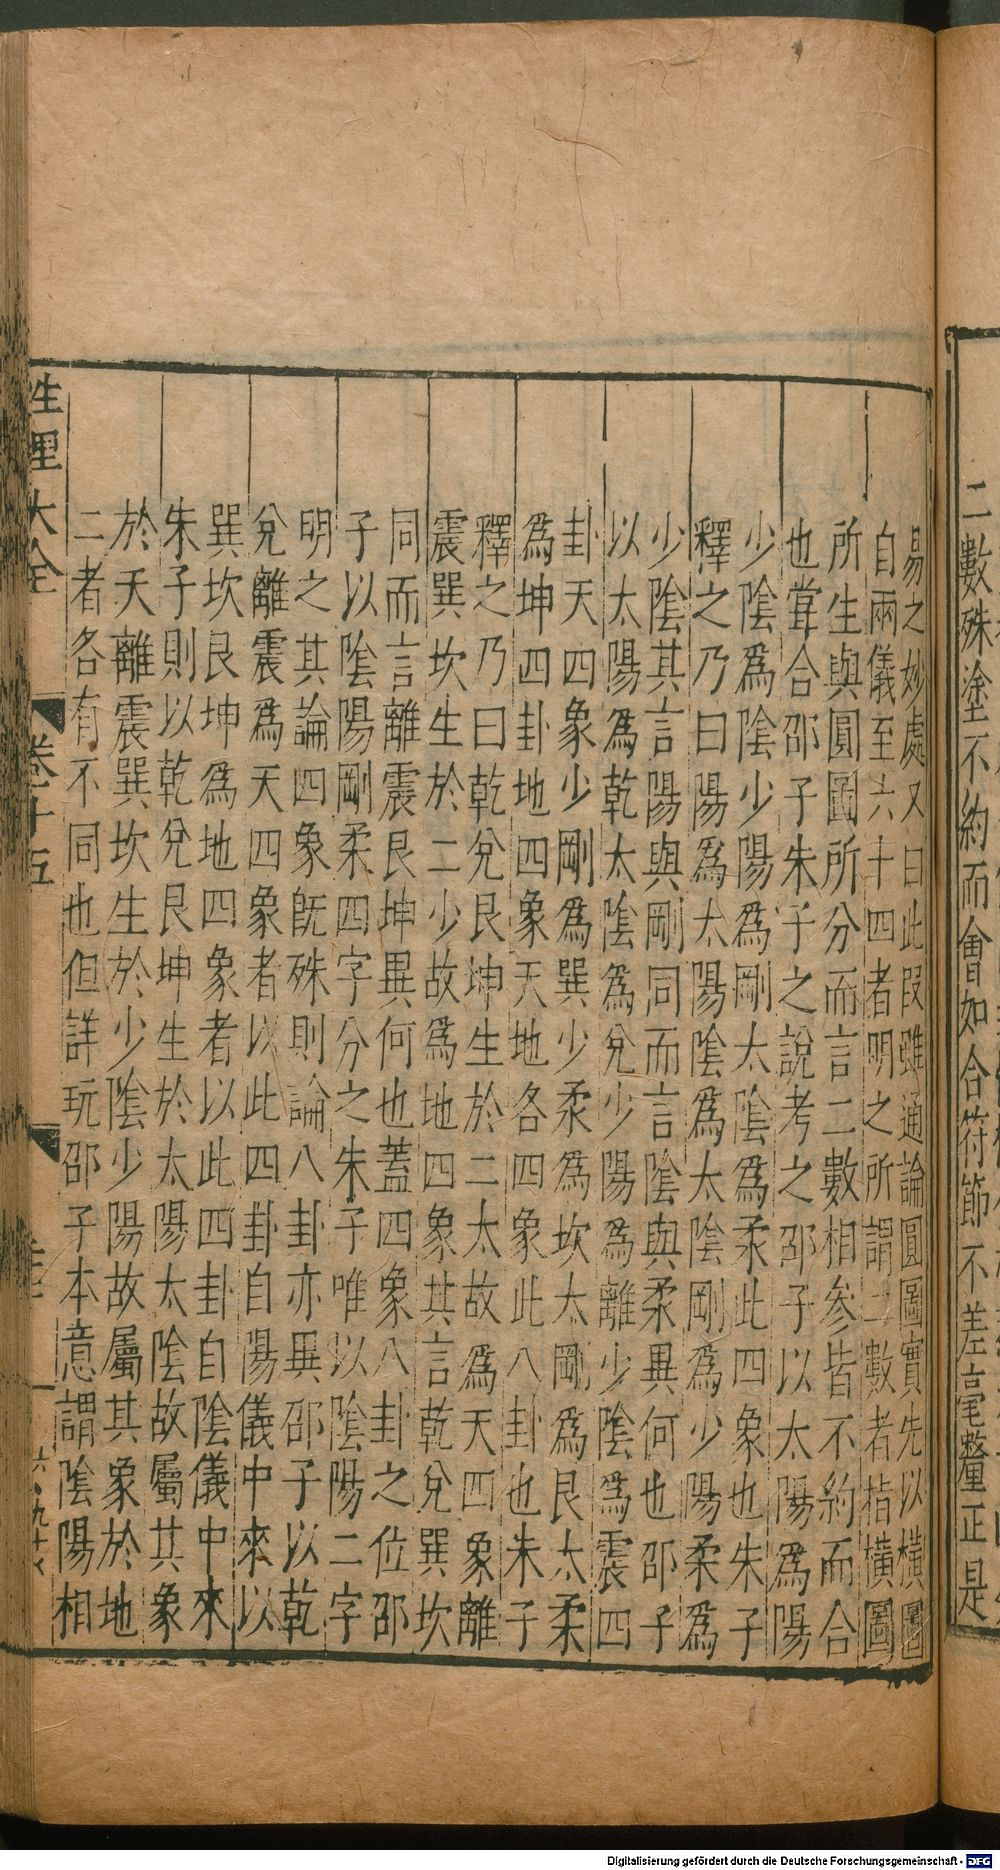 二數殊塗不約而會如合符節不差毫釐正是
易之妙處又曰此段雖通論圓圖實先以橫圖
自兩儀至六十四者明之所謂二數者指橫圖
所生與圓圖所分而言二數相參皆不約而合
也嘗合邵子朱子之說考之邵子以太陽為陽
少陰為陰少陽為剛太陰為柔此四象也朱子
釋之乃曰陽為太陽陰為太陰剛為少陽柔為
少陰其言陽與剛同而言陰與柔異何也邵子
以太陽為乾太陰為兌少陽為離少陰為震四
卦天四象少剛為巽少柔為坎太剛為艮太柔
為坤四卦地四象天地各四象此八卦也朱子
釋之乃曰乾兌艮坤生於二太故為天四象離
震巽坎生於二少故為地四象其言乾兌巽坎
同而言離震艮坤異何也蓋四象八卦之位邵
子以陰陽剛柔四字分之朱子唯以陰陽二字
明之其論四象既殊則論八卦亦異邵子以乾
兌離震為天四象者以此四卦自陽儀中來以
巽坎艮坤為地四象者以此四卦自陰儀中來
朱子則以乾兌艮坤生於太陽太陰故屬其象
於天離震巽坎生於少陰少陽故屬其象於地
二者各有不同也但詳玩邵子本意謂陰陽相
性理大全 卷十五
Digitalisierung gefördert durch die Deutsche Forschungsgemeinschaft - DFG